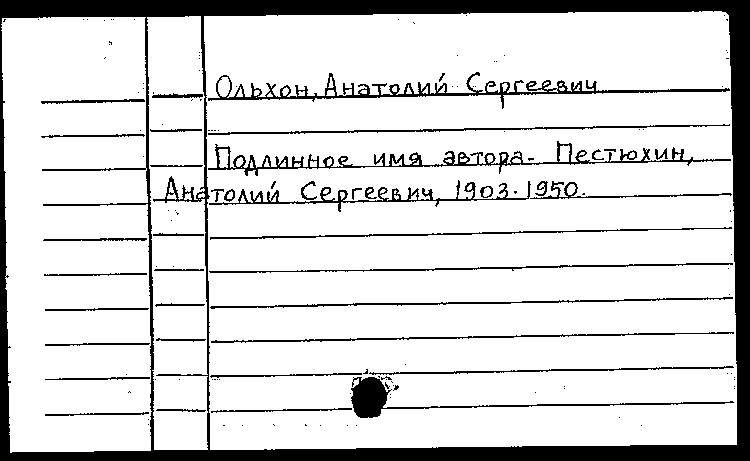 Ольхон, Анатолий Сергеевич
Подлинное имя автора - Пестюхин,
Анатолий Сергеевич, 1903-1950.